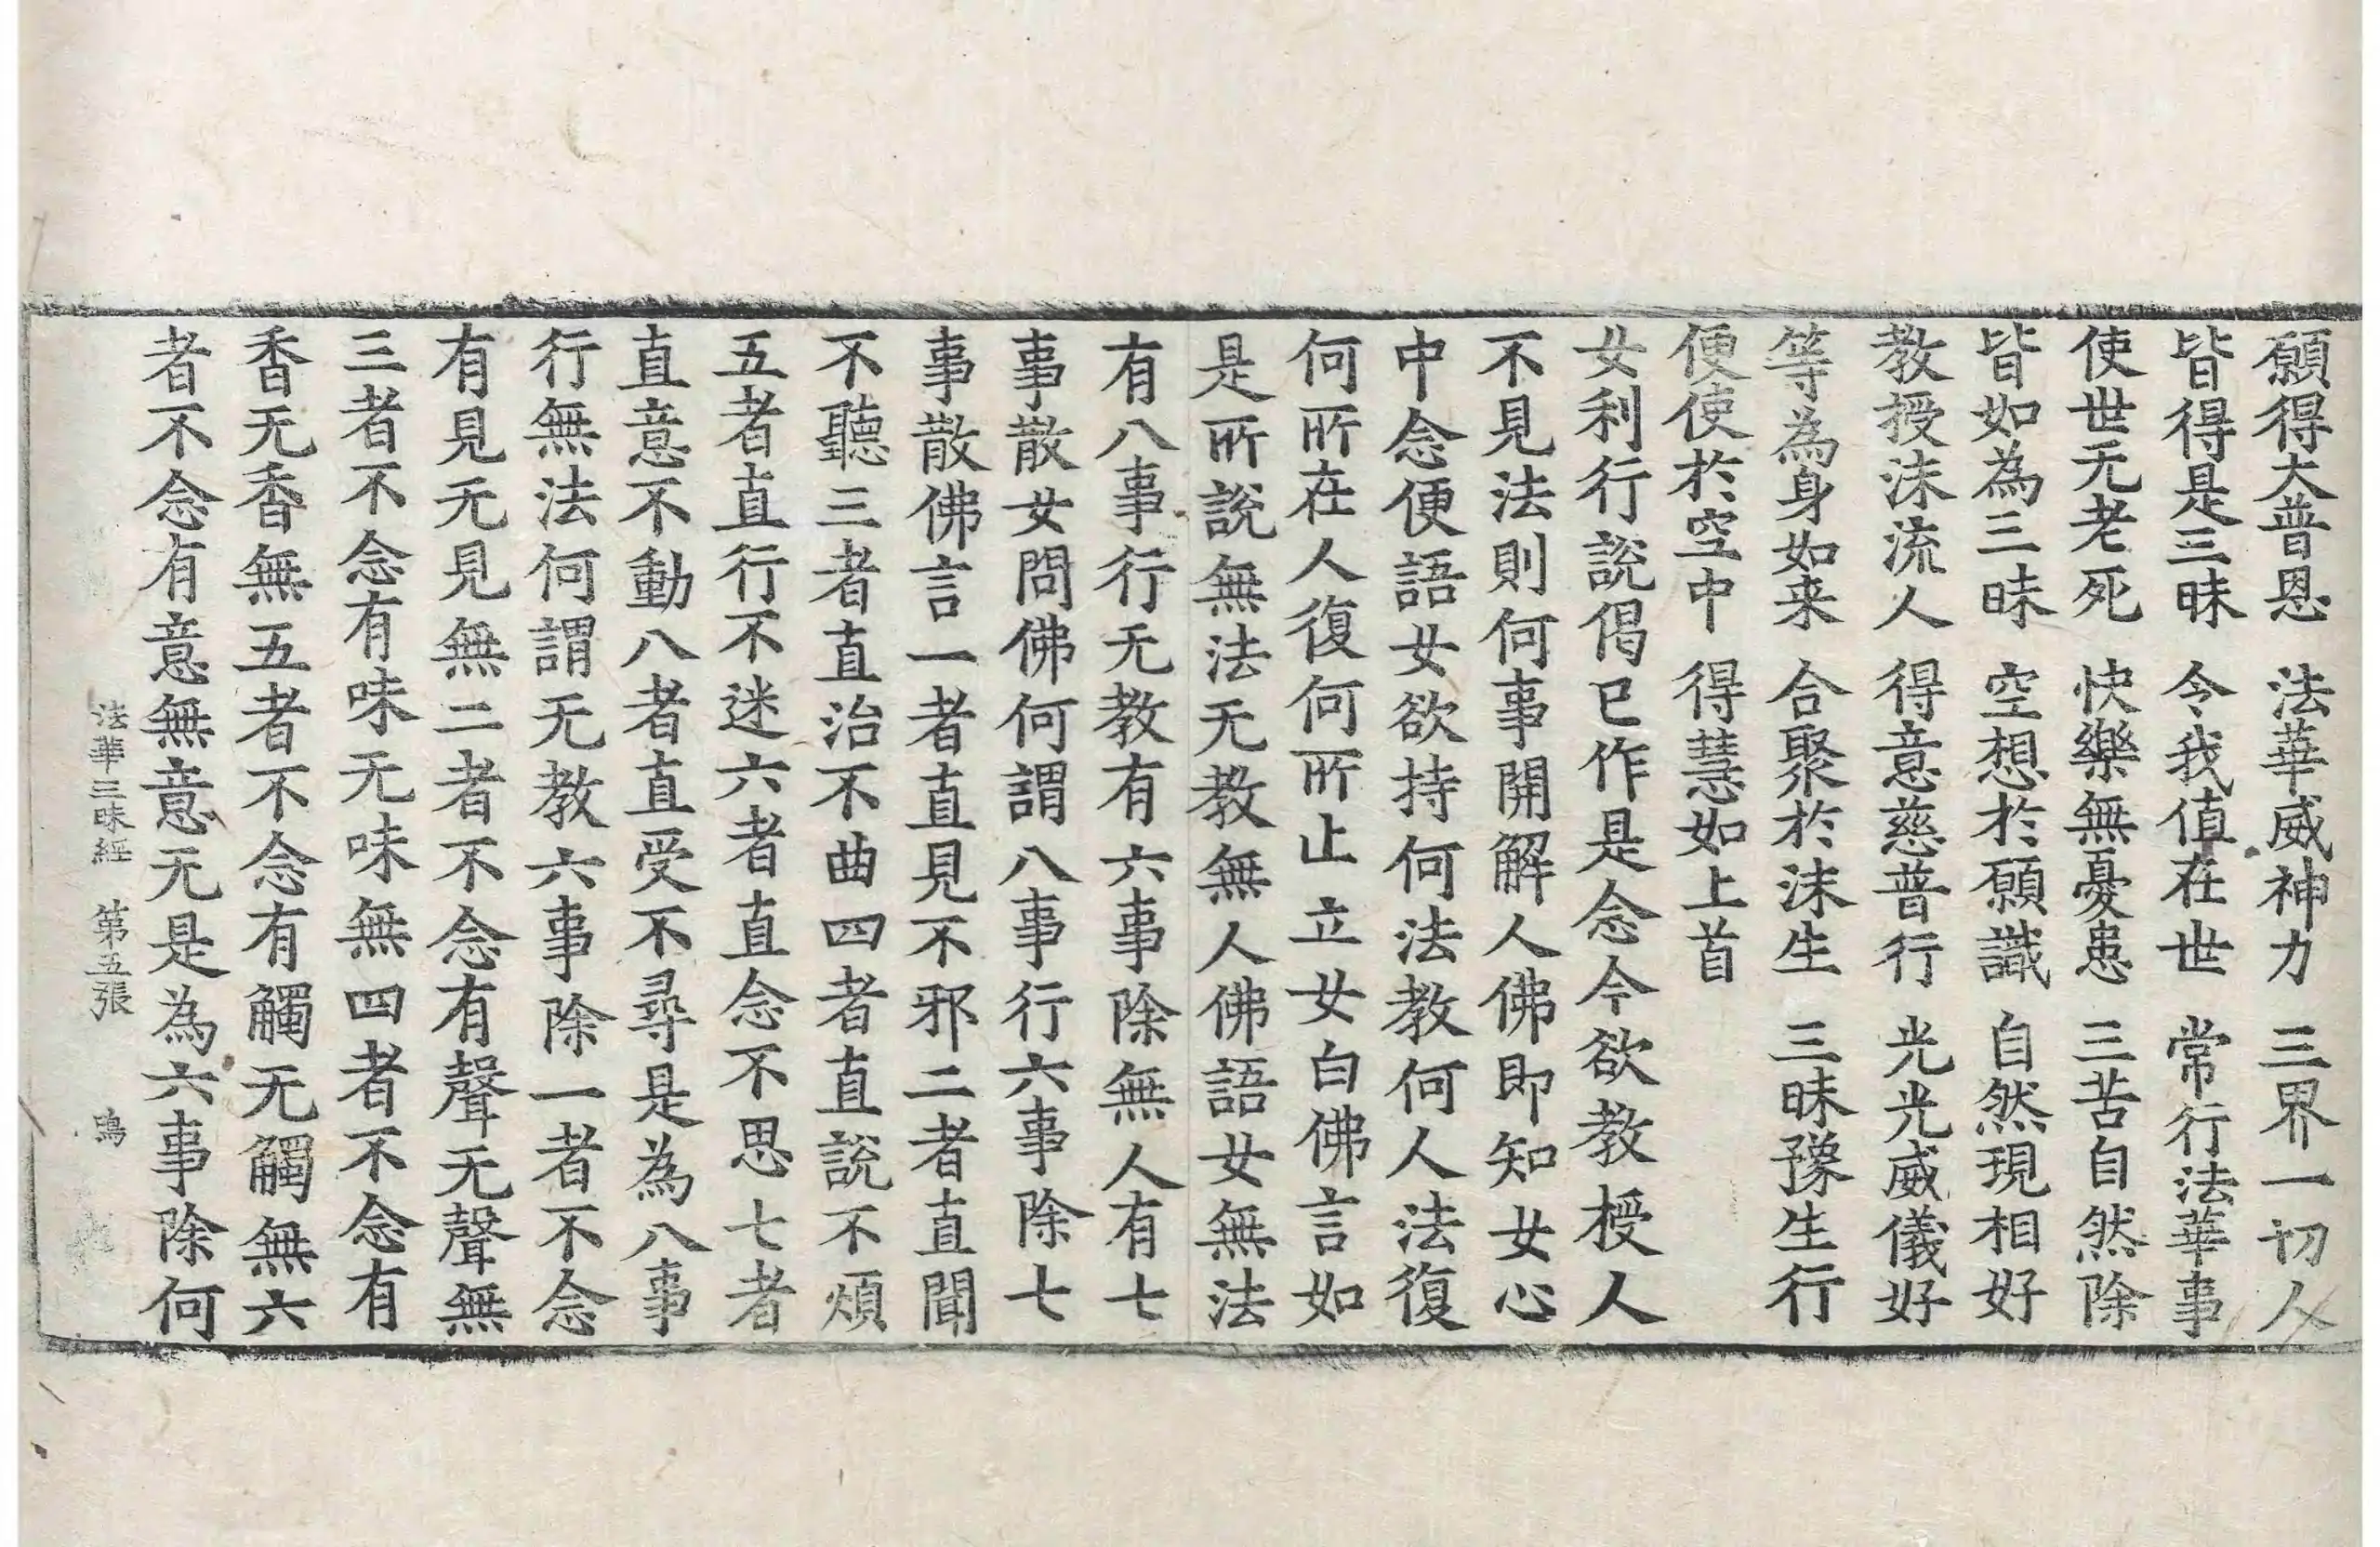 願得大普恩　法華威神力　三界一切人
皆得是三昧　令我值在世　常行法華事
使世无老死　快樂無憂患　三苦自然除
皆如為三昧　空想於願識　自然現相好
教授沫流人　得意慈普行　光光威儀好
等為身如来　合聚於沫生　三昧豫生行
便使於空中　得慧如上首
女利行說偈已作是念今欲教授人
不見法則何事開解人佛即知女心
中念便語女欲持何法教何人法復
何所在人復何所止立女白佛言如
是所說無法无教無人佛語女無法
有八事行无教有六事除無人有七
事散女問佛何謂八事行六事除七
事散佛言一者直見不邪二者直聞
不聽三者直治不曲四者直說不煩
五者直行不迷六者直念不思七者
直意不動八者直受不尋是為八事
行無法何謂无教六事除一者不念
有見无見無二者不念有聲无聲無
三者不念有味无味無四者不念有
香无香無五者不念有觸无觸無六
者不念有意無意无是為六事除何
法華三昧經　第五張　鳴